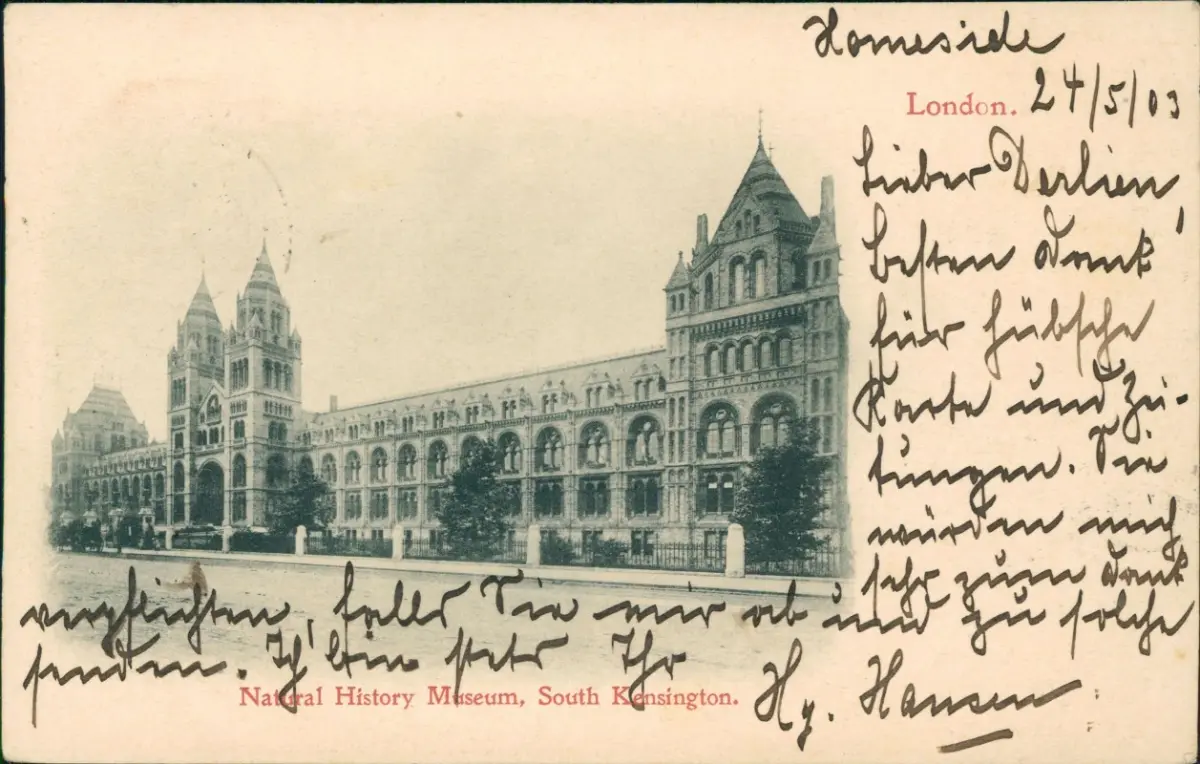 Homeside
London. 24/5/03
Lieber Derlien,
besten Dank
für hübsche
Karte und Zei-
tungen. Sie
würden mich
sehr zum Dank
verpflichten, falls Sie mir ab und zu solche
senden. Ich bin stets Ihr
Hy. Hansen
Natural History Museum, South Kensington.